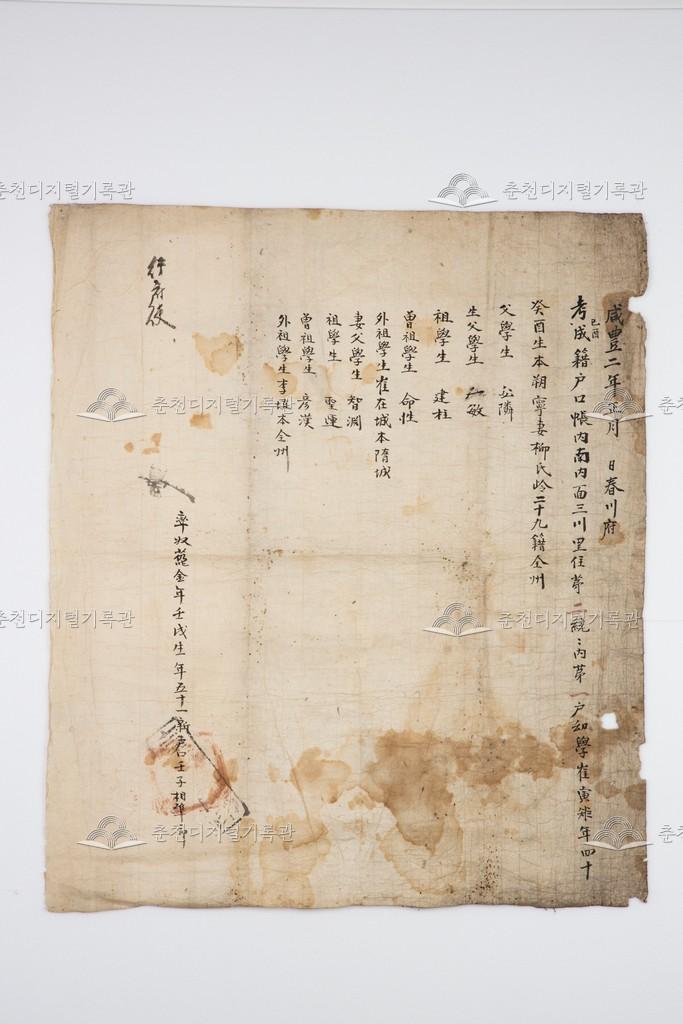 咸豐二年正月 日春川府
考己酉成籍户口帳內南內面三川里住苐二統〻內苐一户幼學崔寅㷗年四十
癸酉生本朔寧妻柳氏岭二十九籍全州
父學生 隣
生父學生 敏
祖學生 建柱
曾祖學生 命性
外祖學生崔在城本隋城
妻父學生 智淵
祖學生 聖運
曾祖學生 彥漢
外祖學生李 本全州
率奴 金年壬戌生年五十一新户口壬子相準印
行府使
춘천디지털기록관
춘천디지털기록관
춘천디지털기록관
춘천디지털기록관
춘천디지털기록관
춘천디지털기록관
춘천디지털기록관